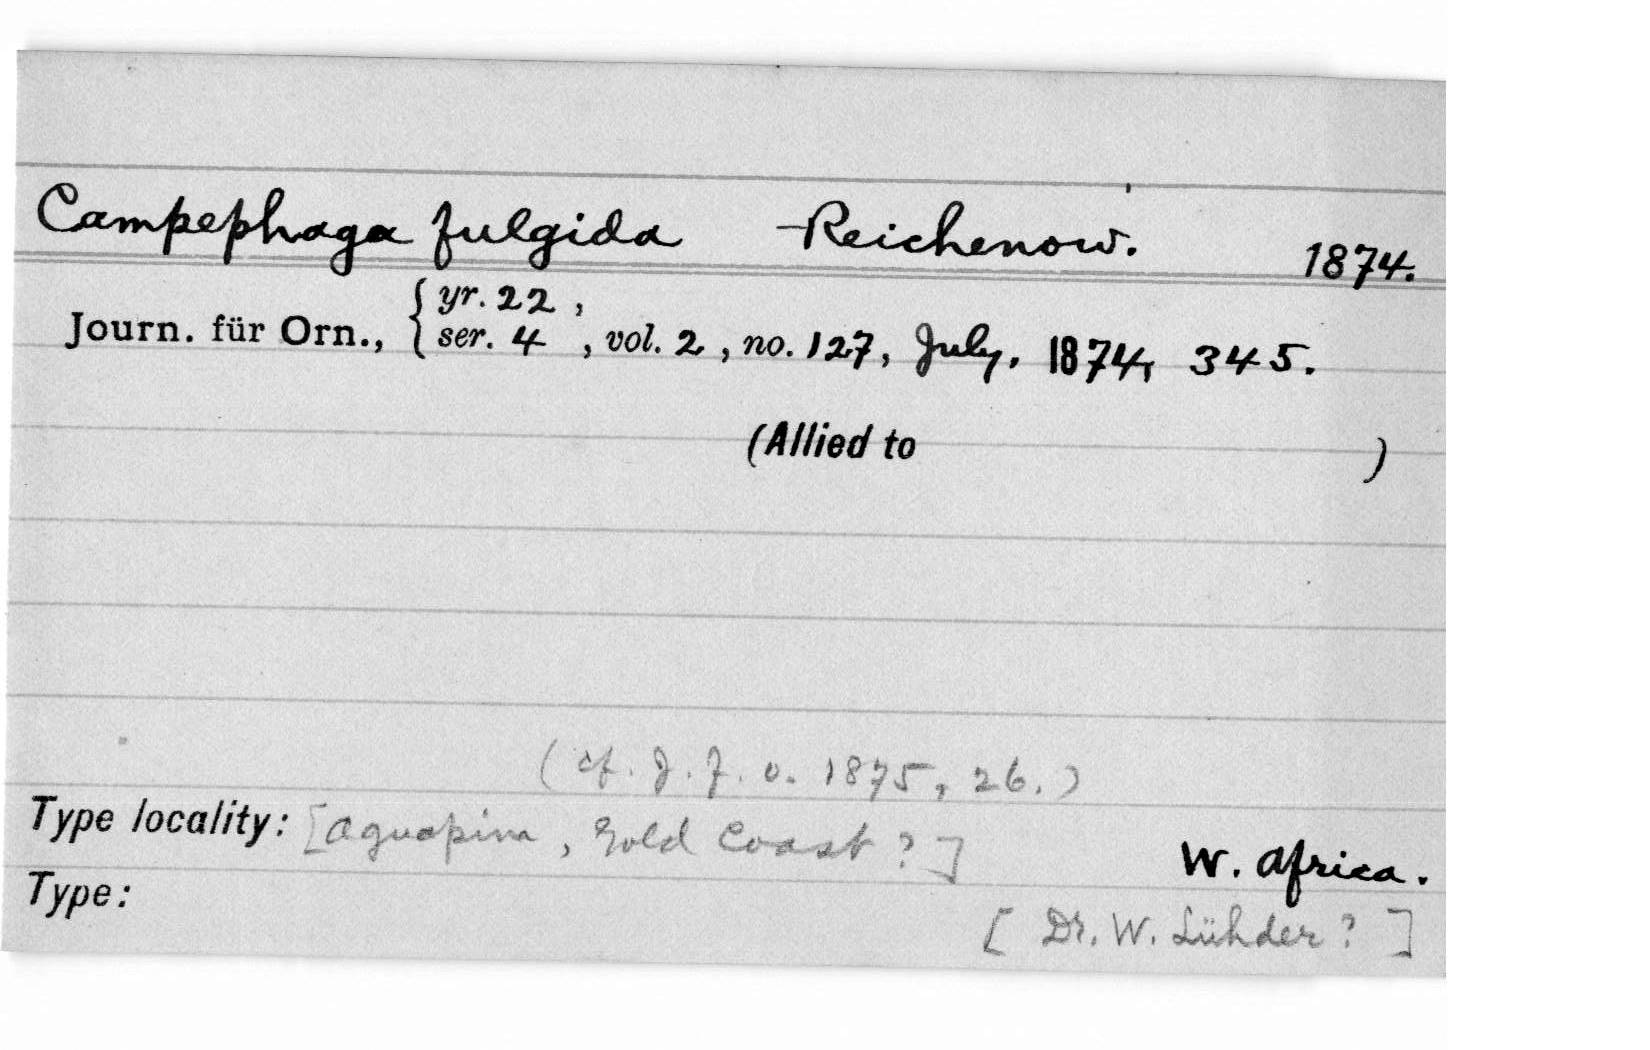 Campephaga fulgida Reichenow. 1874.
Journ. für Orn., { yr. 22 ,
ser. 4 , vol. 2 , no. 127, July, 1874, 345.
(Allied to )
(cf. J. f. O. 1875, 26.)
Type locality: [Aguapim, Gold Coast ?] W. Africa.
Type: [ Dr. W. Lühder ? ]